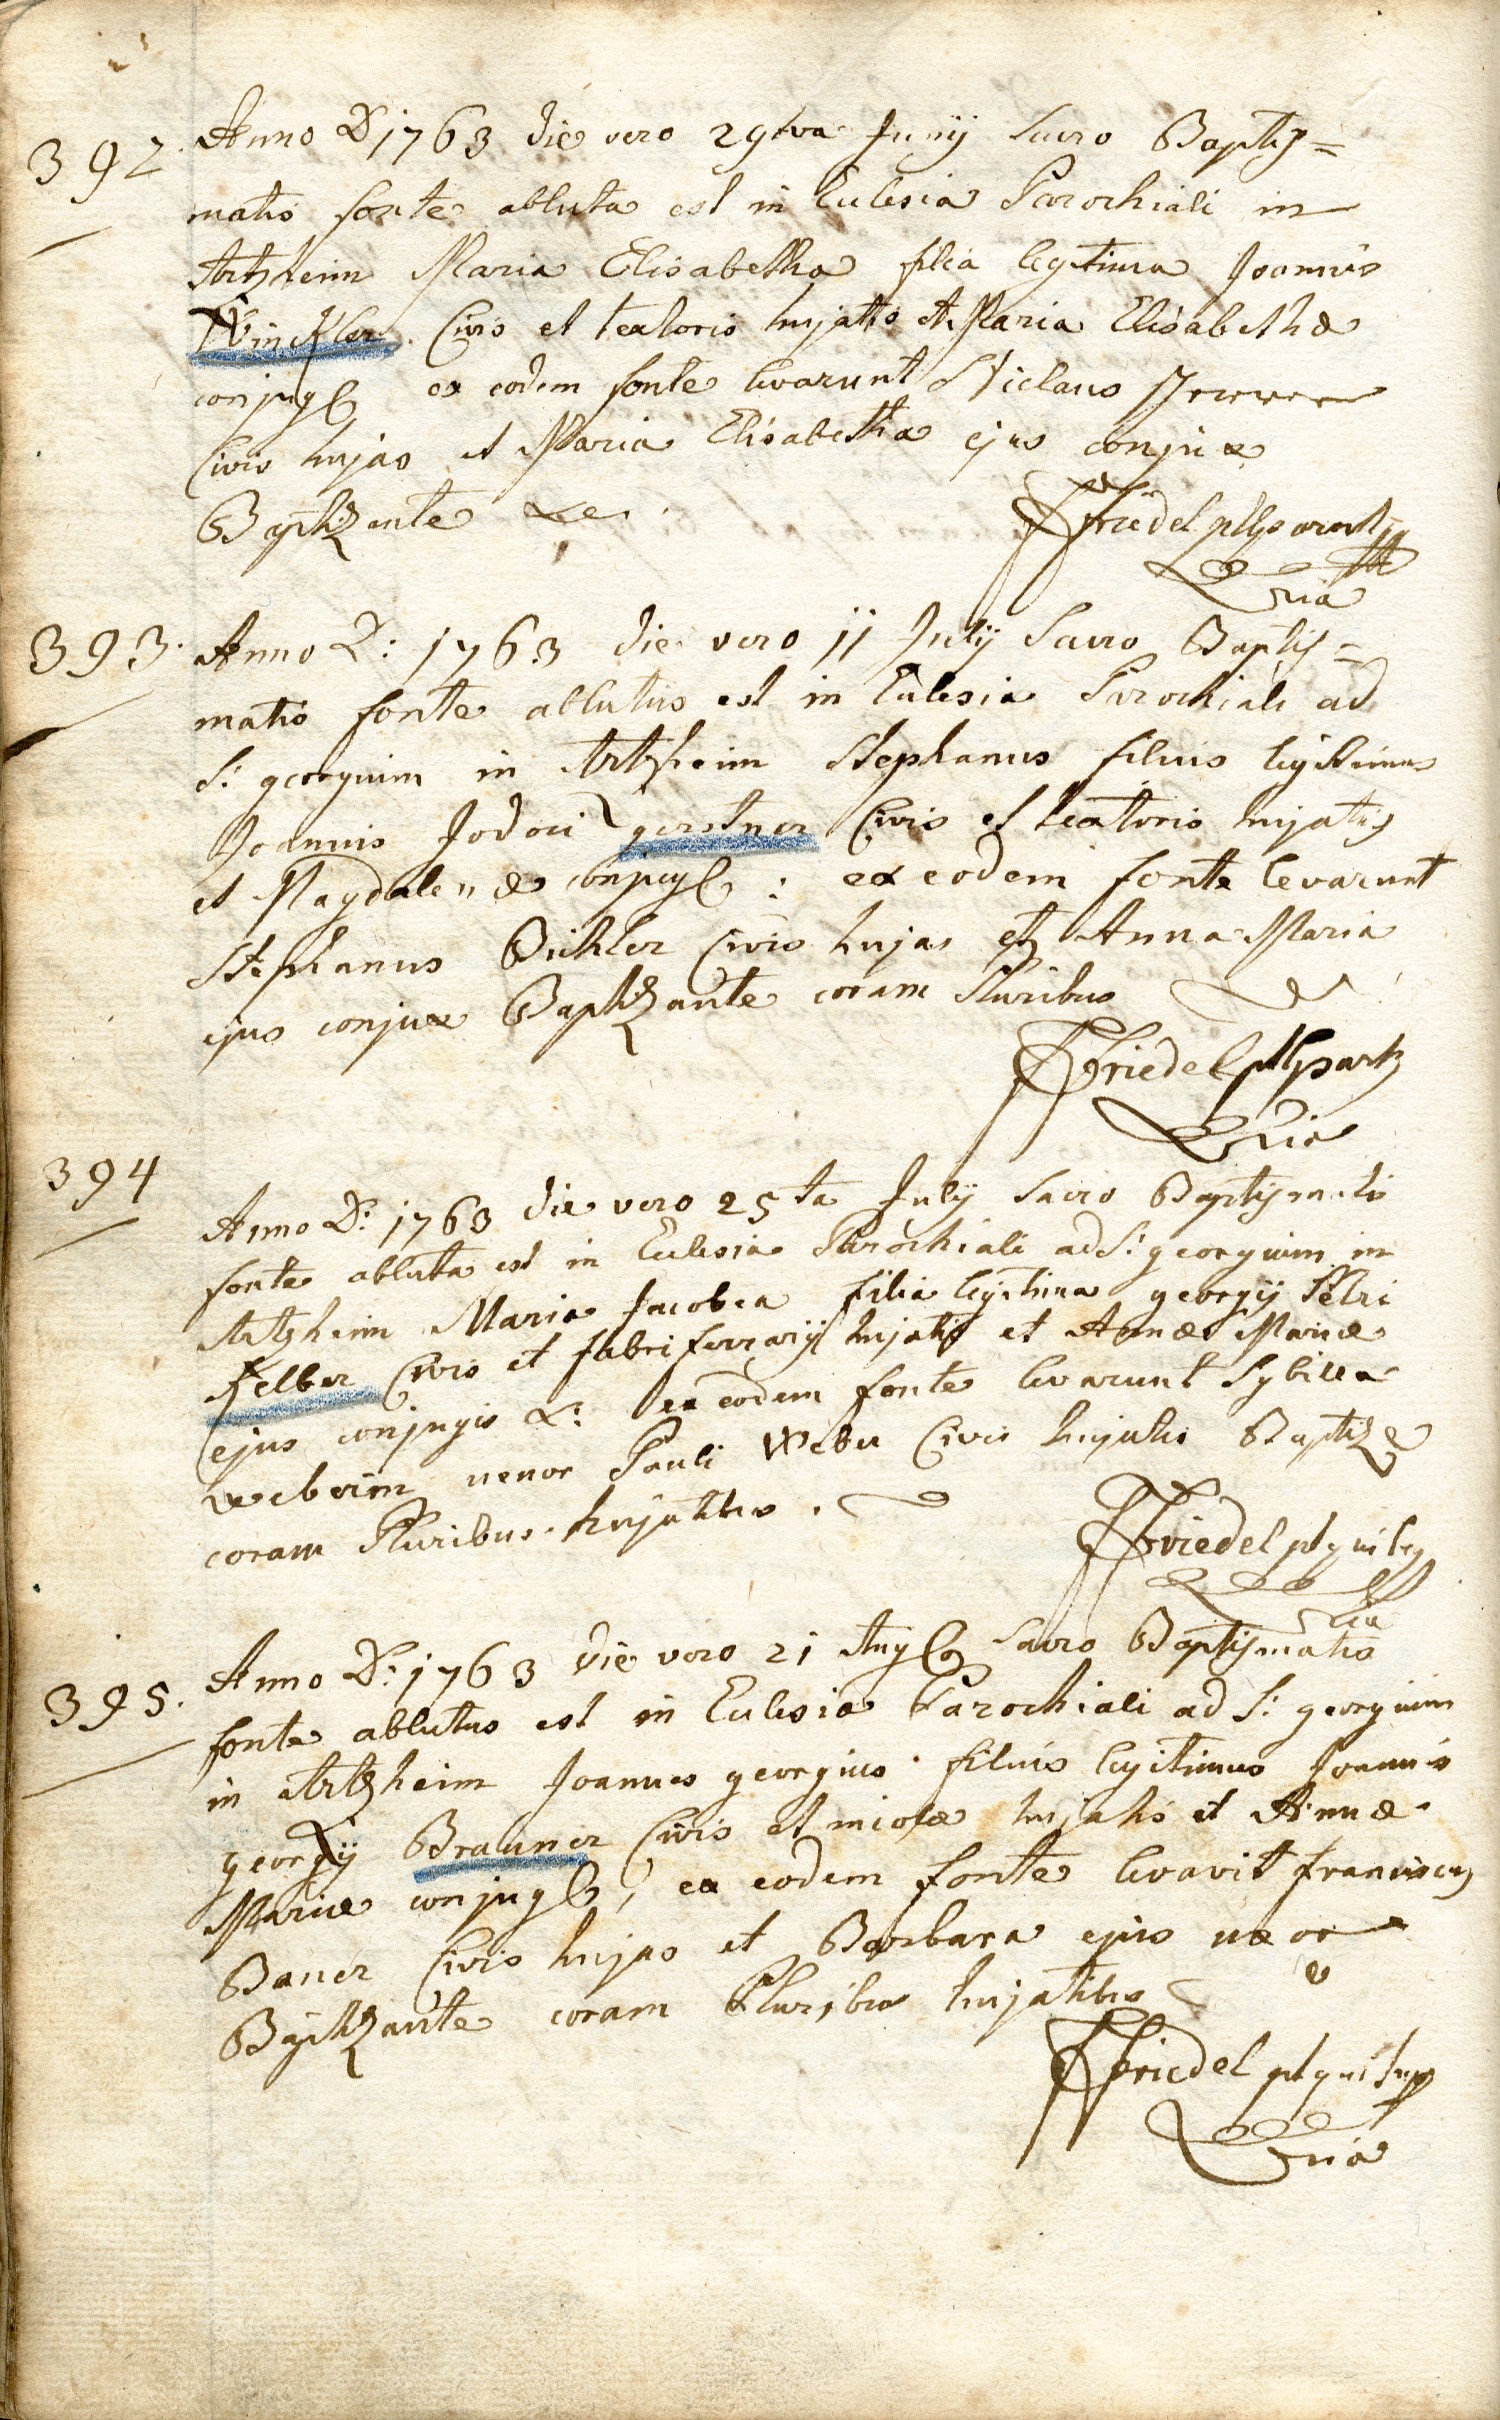 392. Anno D 1763 die vero 29tva Junÿ Sacro Baptis=
matis fonte abluta est in Ecclesia Parochiali in
Artzheim Maria Elisabetha filia legitima Joannis
Winckler. Civis et textoris hujatis et Maria Elisabethæ
conjug ex eodem fonte levarunt Niclaus
Civis hujas et Maria Elisabetha ejus conjux
Baptizante &c.
Friedel
ria
393. Anno D: 1763 die vero 11 Julÿ Sacro Baptis=
matis fonte ablutus est in Ecclesia Parochiali ad
S: georgium in Artzheim Stephanus filius legitimus
Joannis Jodoci gerstner Civis et textoris hujatis
et Magdalenæ conjug : ex eodem fonte levarunt
Stephanus Bichler Civis hujas et Anna Maria
ejus conjux Baptizante coram Pluribus
Friedel
ria
394 Anno D: 1763 die vero 25ta Julÿ Sacro Baptismatis
fonte abluta est in Ecclesia Parochiali ad S: georgium in
Artzheim Maria Jacobea filia legitima georgÿ Petri
Kelber Civis et fabri ferrarÿ hujatis et Annæ Mariæ
ejus conjugis &: ex eodem fonte levarunt Sybilla
weberin uxor Pauli Weber Civis hujatis Baptize
coram Pluribus hujatibus.
Friedel
ria
395. Anno D: 1763 die vero 21 Aug Sacro Baptismatis
fonte ablutus est in Ecclesia Parochiali ad S: georgium
in Artzheim Joannes georgius filius legitimus Joannis
georgÿ Brauner Civis et incolæ hujatis et Annæ
Mariæ conjug, ex eodem fonte levavit franciscus
Baner Civis hujas et Barbara ejus uxor
Baptizante coram Pluribus hujatibus
Friedel
ria